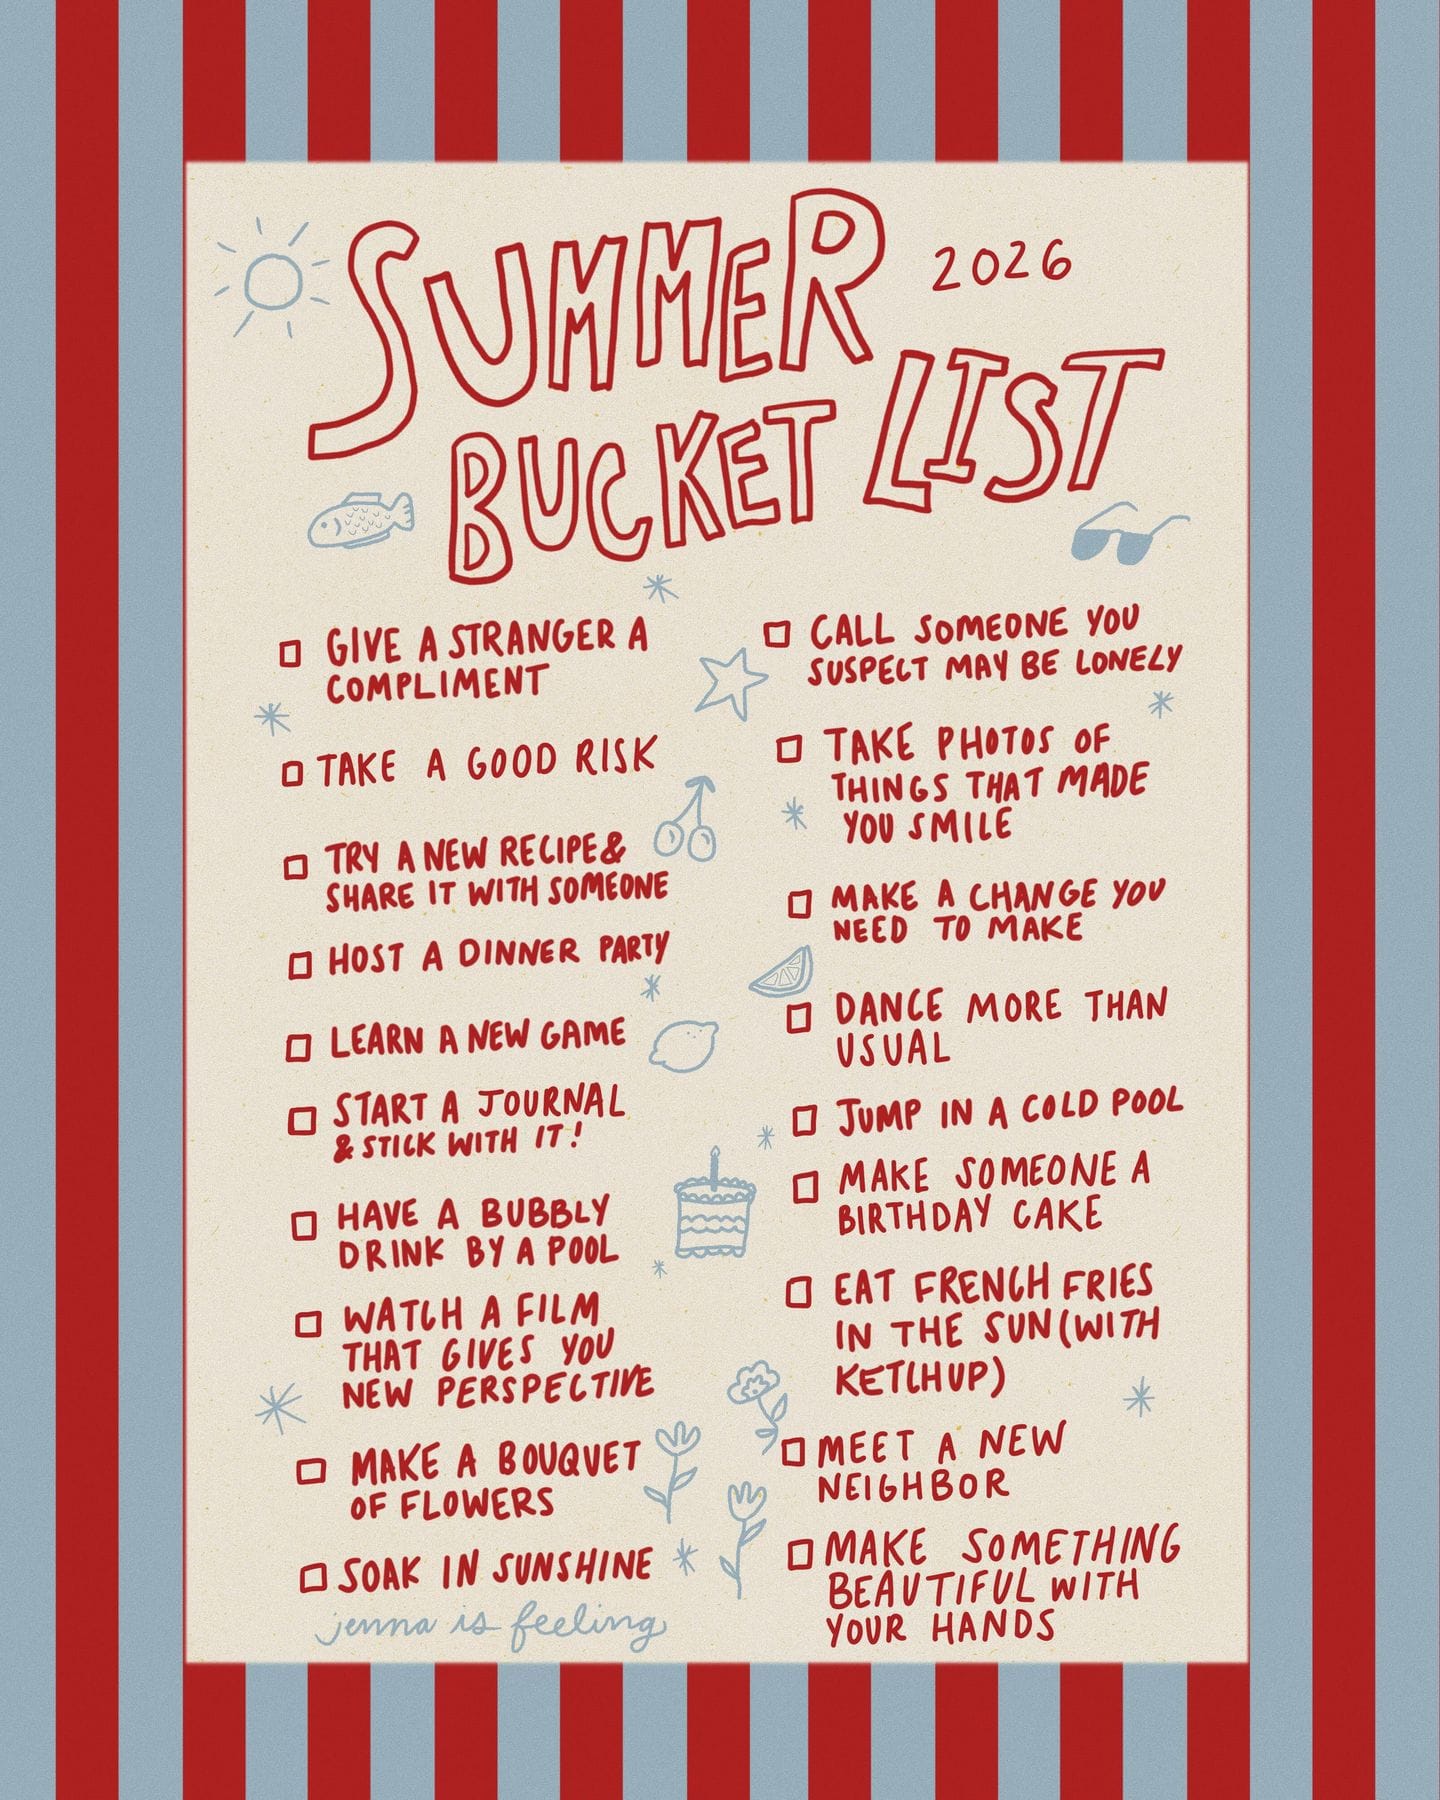 SUMMER
2026
BUCKET LIST
GIVE A STRANGER A
COMPLIMENT
TAKE A GOOD RISK
TRY A NEW RECIPE &
SHARE IT WITH SOMEONE
HOST A DINNER PARTY
LEARN A NEW GAME
START A JOURNAL
& STICK WITH IT!
HAVE A BUBBLY
DRINK BY A POOL
WATCH A FILM
THAT GIVES YOU
NEW PERSPECTIVE
MAKE A BOUQUET
OF FLOWERS
SOAK IN SUNSHINE
jenna is feeling
CALL SOMEONE YOU
SUSPECT MAY BE LONELY
TAKE PHOTOS OF
THINGS THAT MADE
YOU SMILE
MAKE A CHANGE YOU
NEED TO MAKE
DANCE MORE THAN
USUAL
JUMP IN A COLD POOL
MAKE SOMEONE A
BIRTHDAY CAKE
EAT FRENCH FRIES
IN THE SUN (WITH
KETCHUP)
MEET A NEW
NEIGHBOR
MAKE SOMETHING
BEAUTIFUL WITH
YOUR HANDS